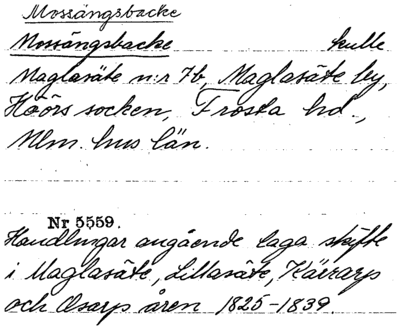 Mossängsbacke
Mossängsbacke kulle
Maglasäte n:r 7b, Maglasäte by,
Höörs socken, Frosta hd.,
Mlm. hus län.
Nr 5559.
Handlingar angående laga skifte
i Maglasäte, Lillasäte, Käxarp
och Osarp åren 1825-1839.